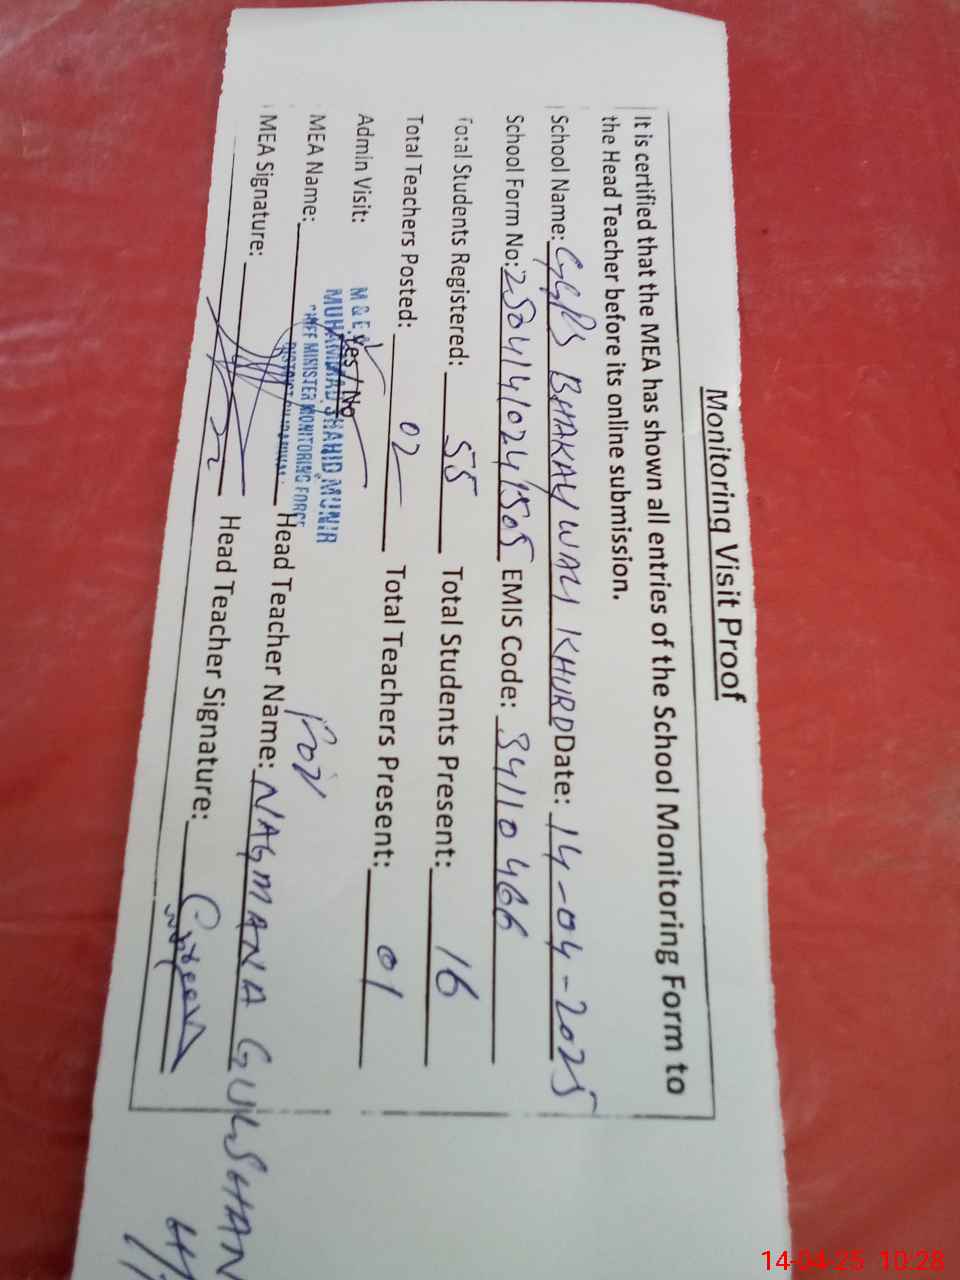 Monitoring Visit Proof
It is certified that the MEA has shown all entries of the School Monitoring Form to
the Head Teacher before its online submission.
School Name: GGPS BHAKAY WALI KHURD Date: 14-04-2025
School Form No: 25041410241505 EMIS Code: 34110466
Total Students Registered: 55 Total Students Present: 16
Total Teachers Posted: 02 Total Teachers Present: 01
Admin Visit: Yes / No
M & E
MUHAMMAD SHAHID MUNIR
CHIEF MINISTER MONITORING FORCE
DISTRICT
MEA Name: Head Teacher Name: NAGMANA GULSHAN
MEA Signature: Head Teacher Signature:
14-04-25 10:28